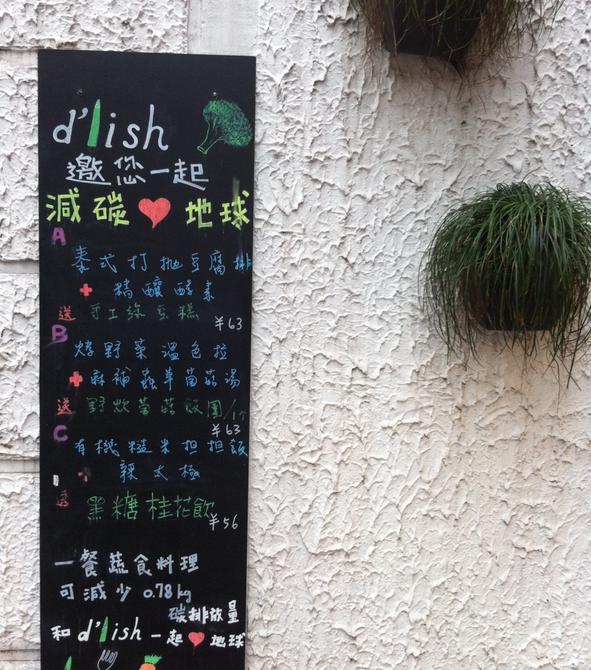 d'lish
邀您一起
減碳❤地球
A
泰式打拋豆腐排
+ 精釀酵素
送 手工綠豆糕
¥63
B
烤野菜溫色拉
+ 麻補蟲草菌菇湯
送 野炊菌菇飯團/1个
¥63
C
有機糙米担担飯
+ 辣太極
送 黑糖桂花飲
¥56
一餐蔬食料理
可減少 0.78kg
碳排放量
和d'lish一起❤地球